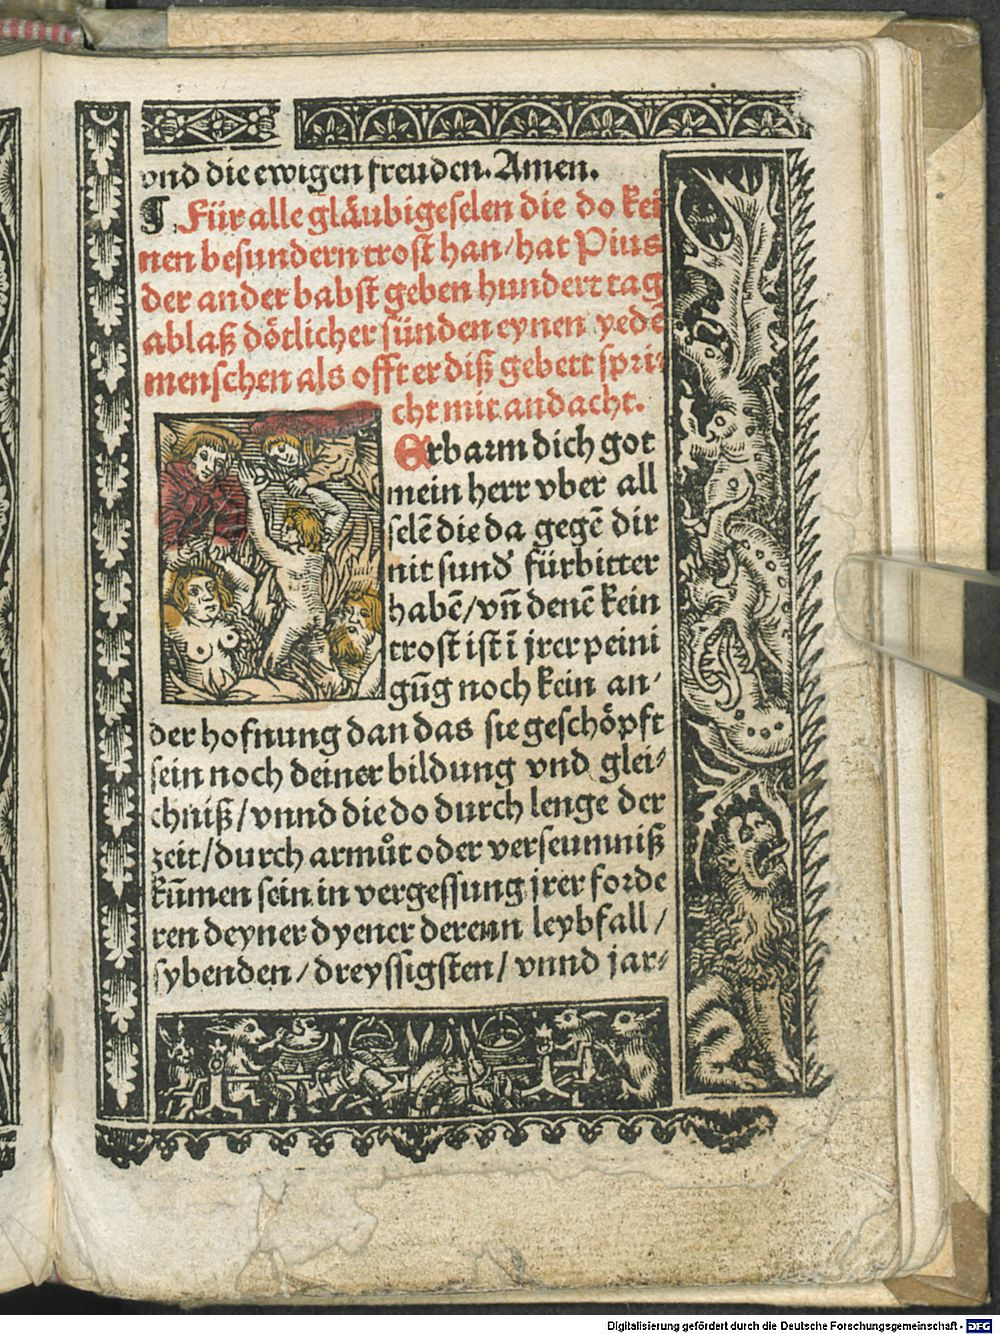 vnd die ewigen freuden. Amen.
¶ Für alle gläubige selen die do kei
nen besundern trost han/hat Pius
der ander babst geben hundert tag
ablaß dötlicher sünden eynen yedē
menschen als offt er diß gebett spri⸗
cht mit andacht.
Erbarm dich got
mein herr vber all
selē die da gegē dir
nit sund' fürbitter
habē/vn̄ denē kein
trost ist ī jrer peini
gūg noch kein an⸗
der hofnung dan das sie geschöpft
sein noch deiner bildung vnd glei⸗
chniß/vnnd die do durch lenge der
zeit/durch armůt oder verseumniß
kūmen sein in vergessung jrer forde
ren deyner dyener derenn leybfall/
sybenden/dreyssigsten/vnnd jar⸗
Digitalisierung gefördert durch die Deutsche Forschungsgemeinschaft - DFG